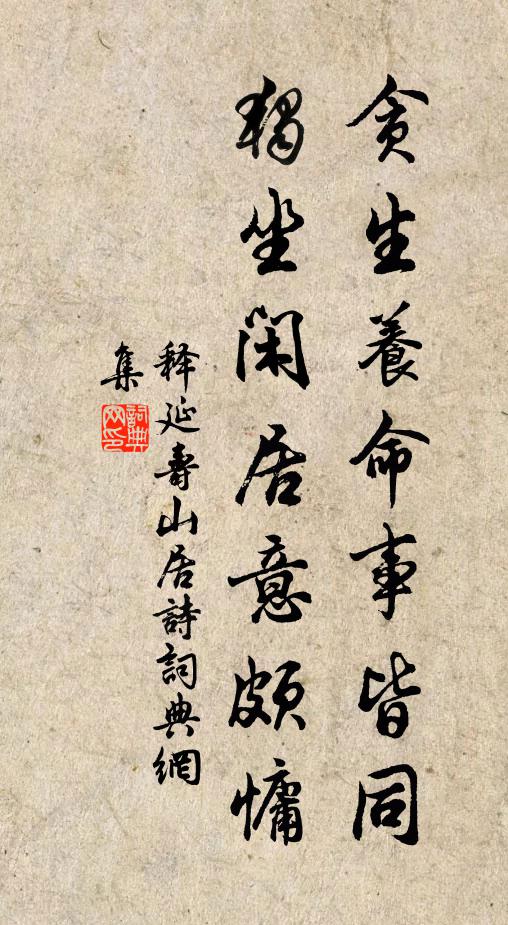 貪生養命事皆同
獨坐閑居意頗慵
释延壽山居詩詞典網
集
詞典
网印